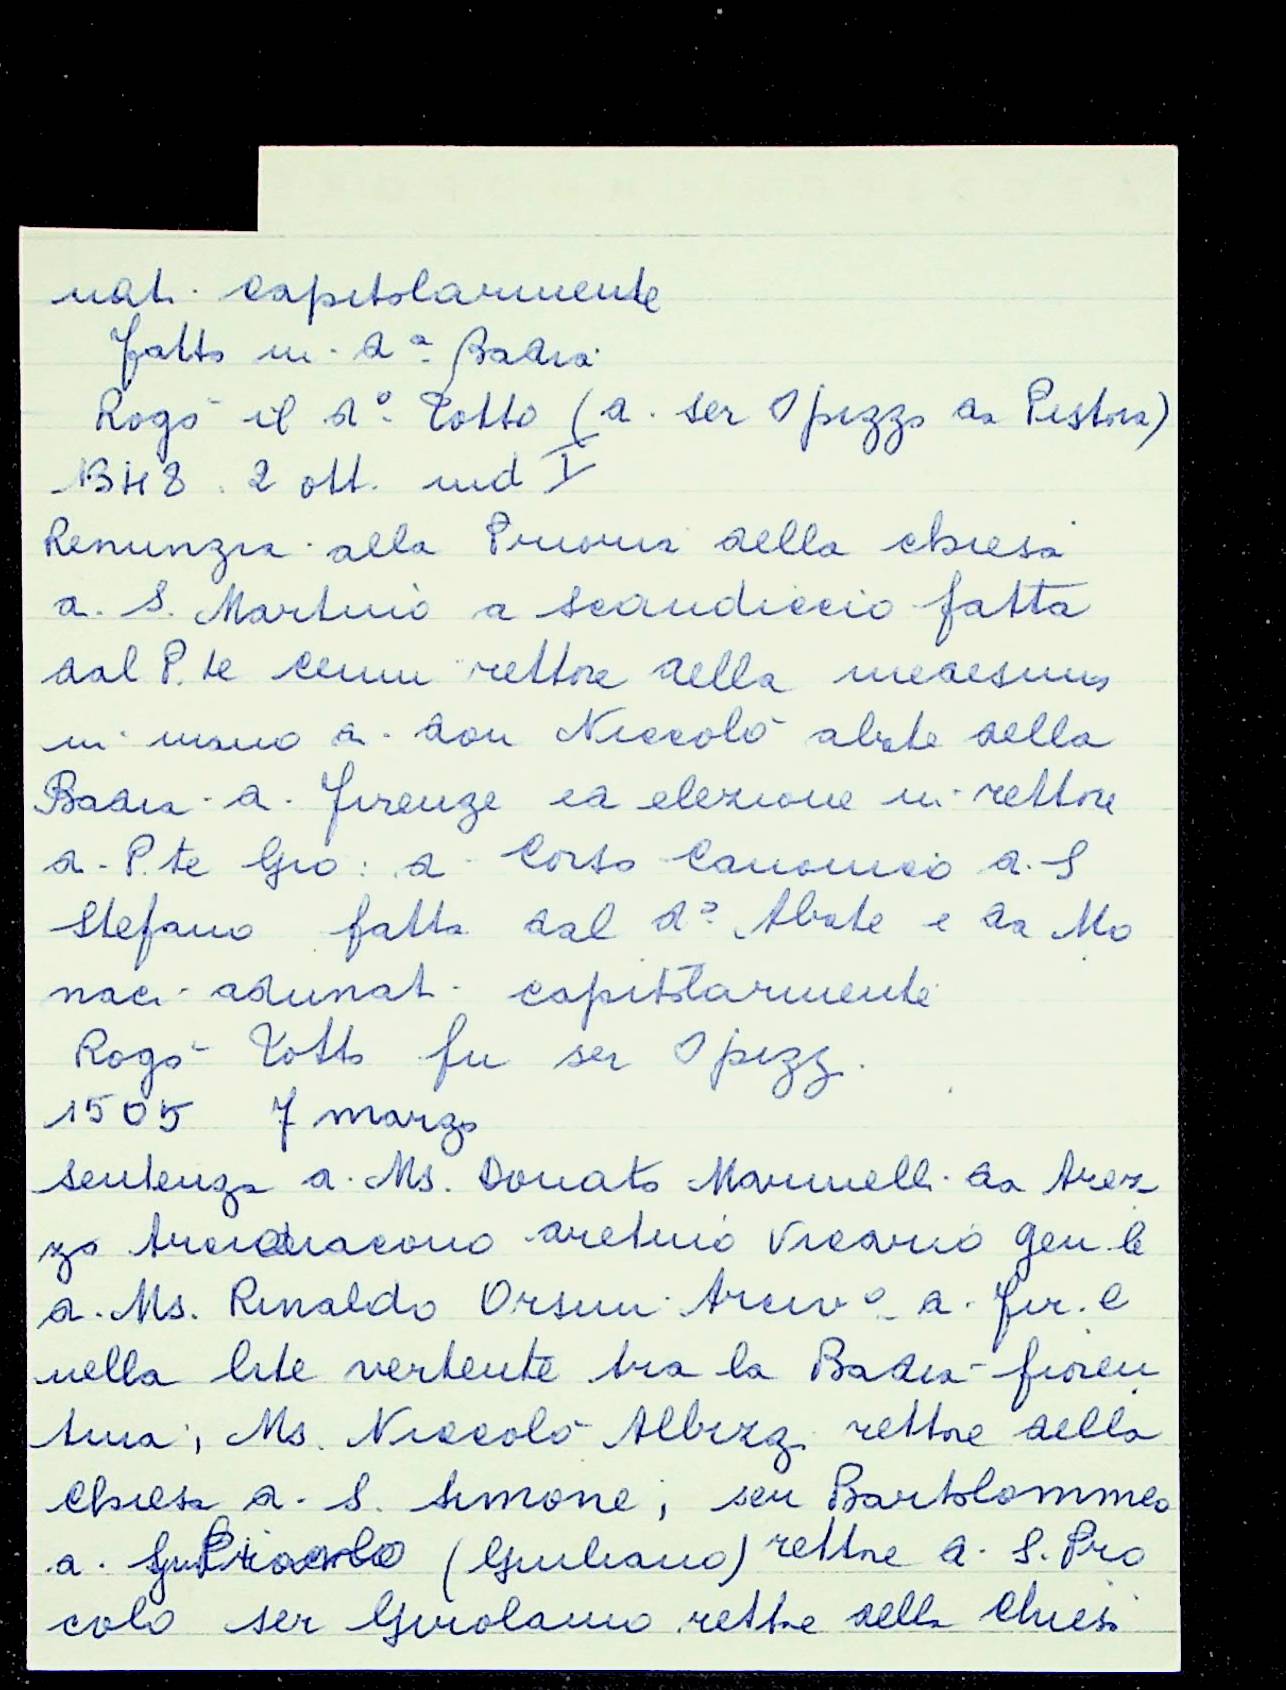 nati capitolarmente
Fatto in d.ª Badia
Rogò il d.º Totto (di ser Spizzo da Pistoia)
1348. 2 ott. ind I
Renunzia alla Prioria della chiesa
di S. Martino a Scandiccio fatta
dal P.te Cenni rettore della medesima
in mano di don Niccolò abate della
Badia di Firenze ed elezione in rettore
di P.te Gio: di Corso Canonico di S
Stefano fatta dal d.º Abate e da Mo
naci adunati capitolarmente
Rogò Totto fu ser Spizz.
1505 7 marzo
Sentenza di Ms. Donato Marinelli da Arez
zo Arcidiacono aretino Vicario gen.le
di Ms. Rinaldo Orsini Arciv.º di Fir.e
nella lite vertente tra la Badia fioren
tina; Ms. Niccolò Albizzi rettore della
Chiesa di S. Simone; ser Bartolommeo
di (Giuliano) rettore di S. Pro
colo ser Girolamo rettore della Chiesa